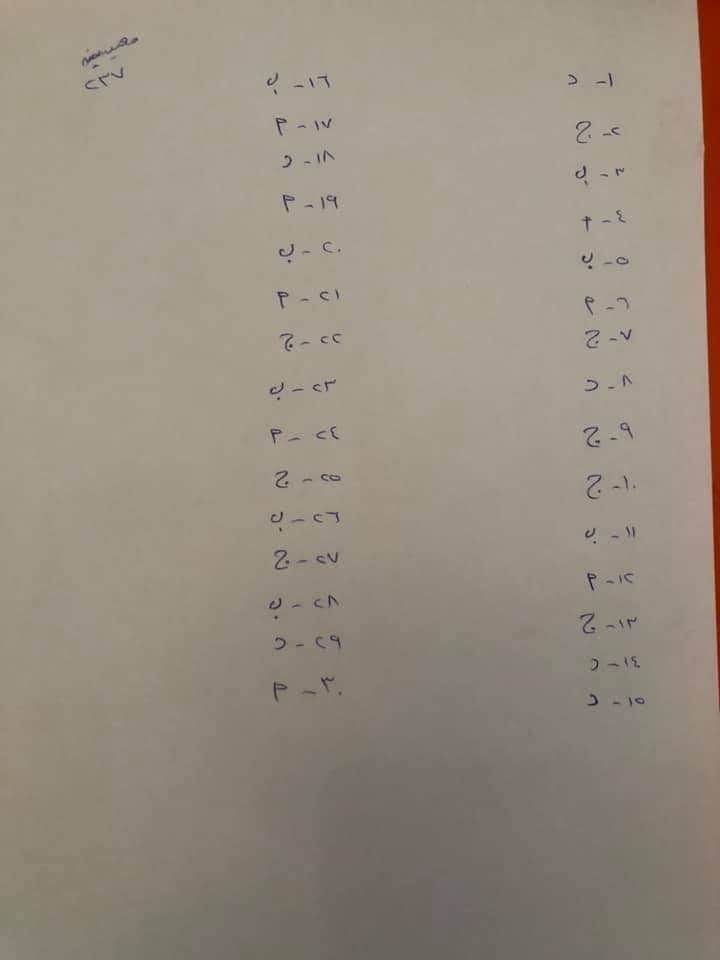 ٢٣٧
١- د
٢- ج
٣- ب
٤- أ
٥- ب
٦- أ
٧- ج
٨- د
٩- ج
١٠- ج
١١- ب
١٢- أ
١٣- ج
١٤- د
١٥- د
١٦- ب
١٧- أ
١٨- د
١٩- أ
٢٠- ب
٢١- أ
٢٢- ج
٢٣- ب
٢٤- أ
٢٥- ج
٢٦- ب
٢٧- ج
٢٨- ب
٢٩- د
٣٠- أ